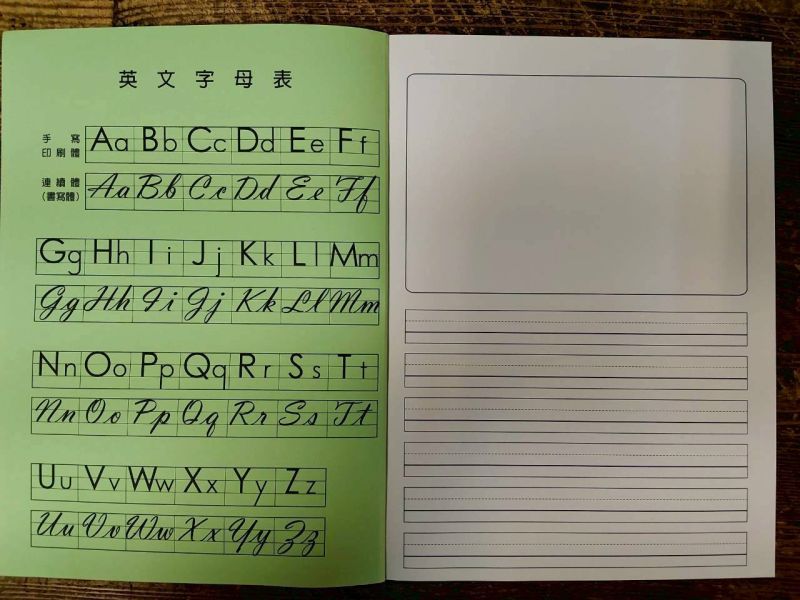 英文字母表
手寫
印刷體
Aa Bb Cc Dd Ee Ff
連續體
(書寫體)
Aa Bb Cc Dd Ee Ff
Gg Hh Ii Jj Kk Ll Mm
Gg Hh Ii Jj Kk Ll Mm
Nn Oo Pp Qq Rr Ss Tt
Nn Oo Pp Qq Rr Ss Tt
Uu Vv Ww Xx Yy Zz
Uu Vv Ww Xx Yy Zz